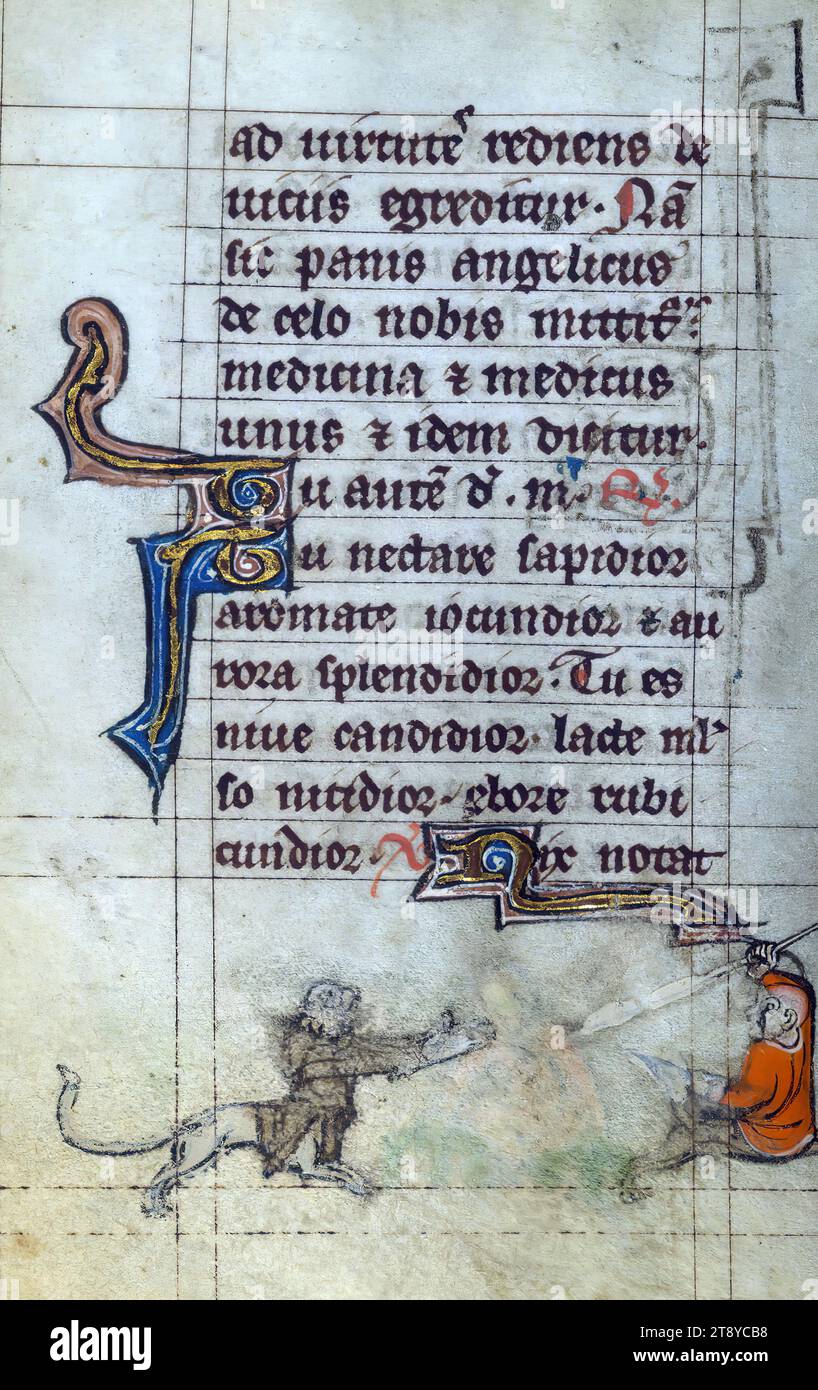 ad uirtutē rediens de
uiciis egreditur. Nā
sic panis angelicus
de celo nobis mittit᷑.
medicina ⁊ medicus
unus ⁊ idem dicitur.
Tu autē d̄. m̄. R̸.
Tu nectare sapidior
aromate iocundior ⁊ au
rora splendidior. Tu es
niue candidior. lacte ml̾
so nitidior. ebore rubi
cundior. V̸. Nix notat
alamy
alamy
Image ID: 2T8YCB8
www.alamy.com